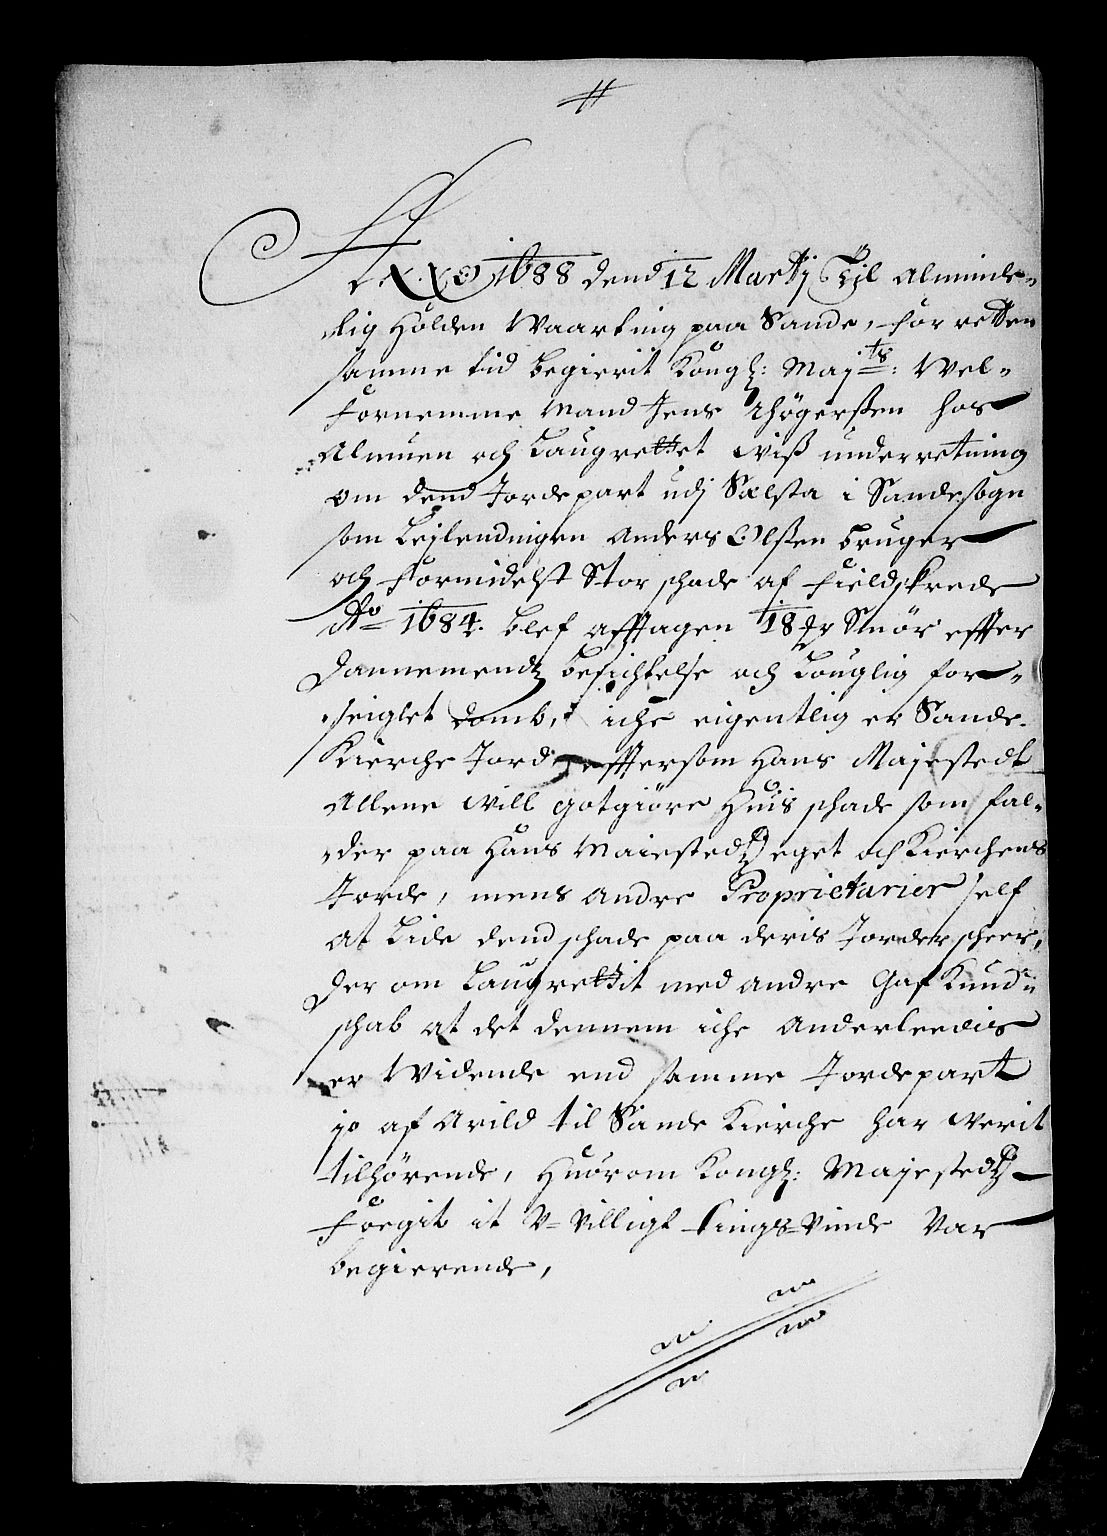 Anno 1688 dend 12 Martij Til Alminde-
lig Holden Waarting paa Sande, for retten
samme tid begierit Kongl: Maj:ts: Wel-
fornemme Mand Jens Thögersen hos
Almuen och Laugrettet wiss underretning
om dend Jordepart udj Sælsta i Sandesogn
som Lejlendingen Anders Olsen bruger
och formidelst Stor schade af fieldskrede
Ao 1684. blef afftagen 18 Smör effter
Dannemendz besichtelse och Louglig for-
seiglet Domb, iche eigentlig er Sande
Kierche Jord, effersom Hans Majestedt
Allene will gotgiöre Huis schade som fal-
der paa Hans Maiestedz eget och Kierchens
Jorde, mens andre Proprietarier self
at Lide dend schade paa deris Jorder scheer,
Der om Laugrettit med andre gaf Kund-
schab at det dennem iche Anderleedis
er Widende end samme Jordepart
jo af Arild til Sande Kierche har werit
tilhörende, Huorom Kongl: Majestedz
foegit it V-villigt tings-vinde var
begierende,